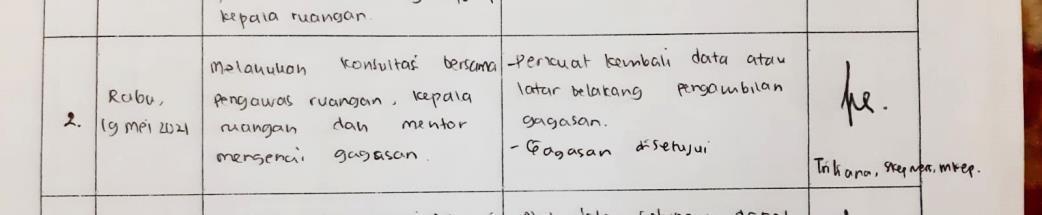 kepala ruangan.
2.
Rabu,
19 mei 2021
melakukan konsultasi bersama
pengawas ruangan, kepala
ruangan dan mentor
mengenai gagasan.
-Perkuat kembali data atau
latar belakang pengambilan
gagasan.
- Gagasan disetujui
Trikana, Skep Ners, mkep.